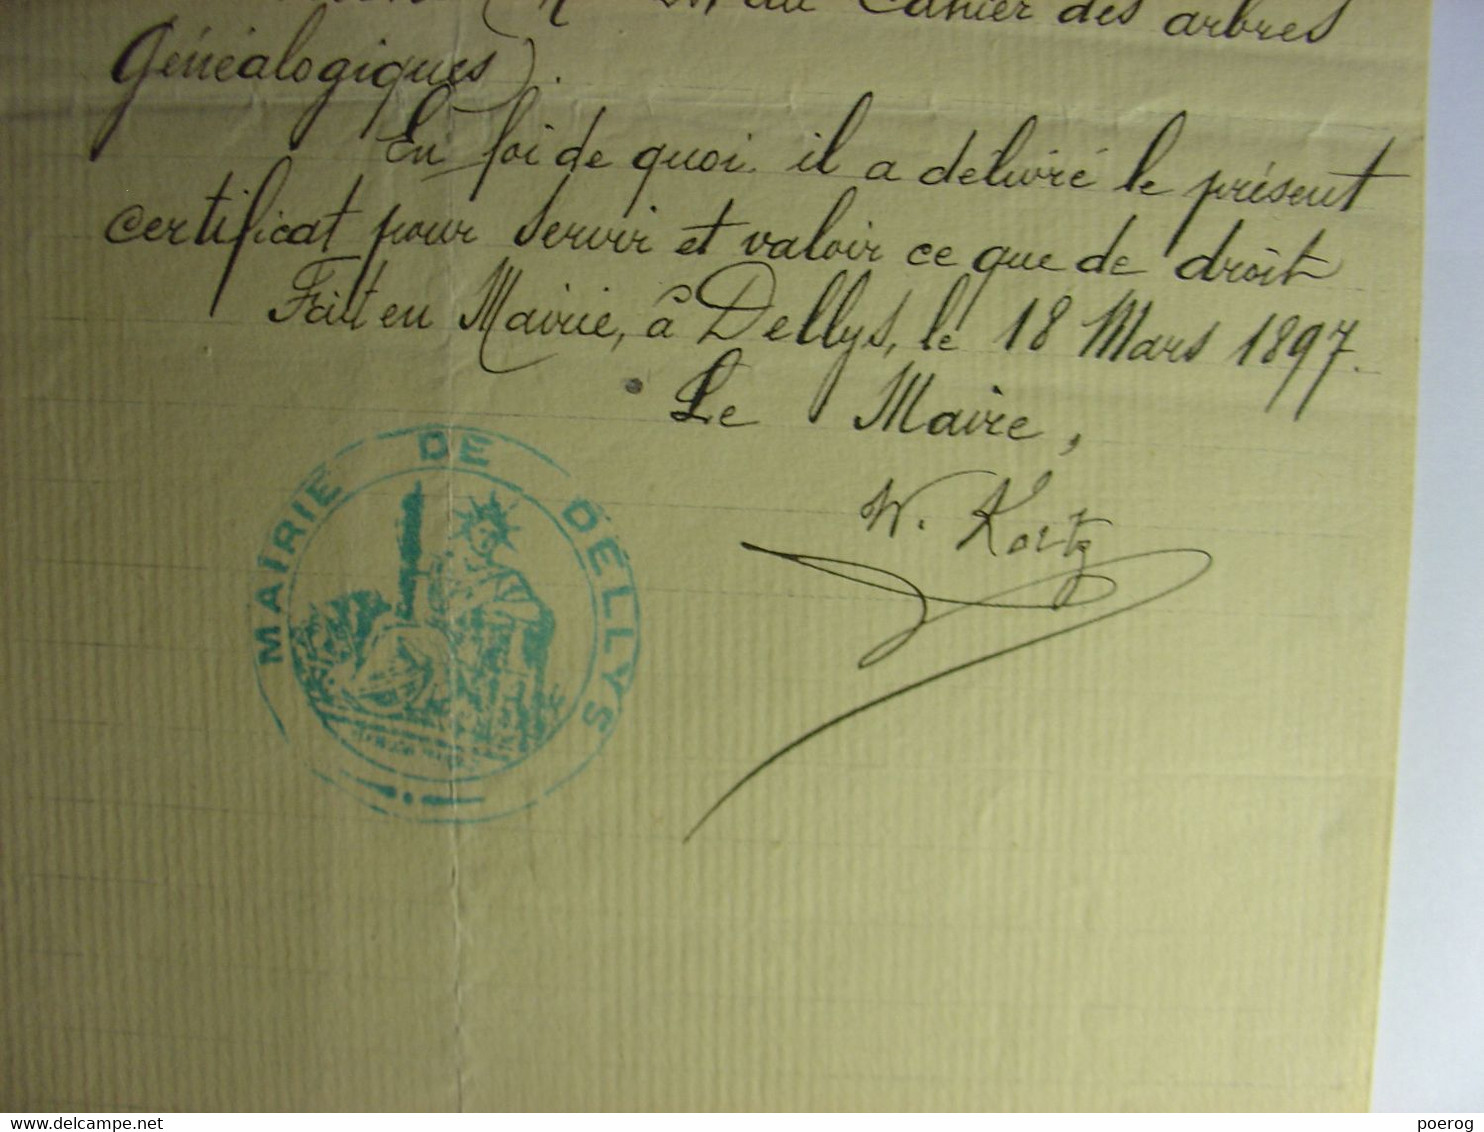 du Cahier des arbres
Généalogiques).
En foi de quoi il a délivré le présent
certificat pour servir et valoir ce que de droit
Fait en Mairie, à Dellys, le 18 Mars 1897.
Le Maire,
W. Kortz
MAIRIE DE DELLYS
delcampe.net
poerog